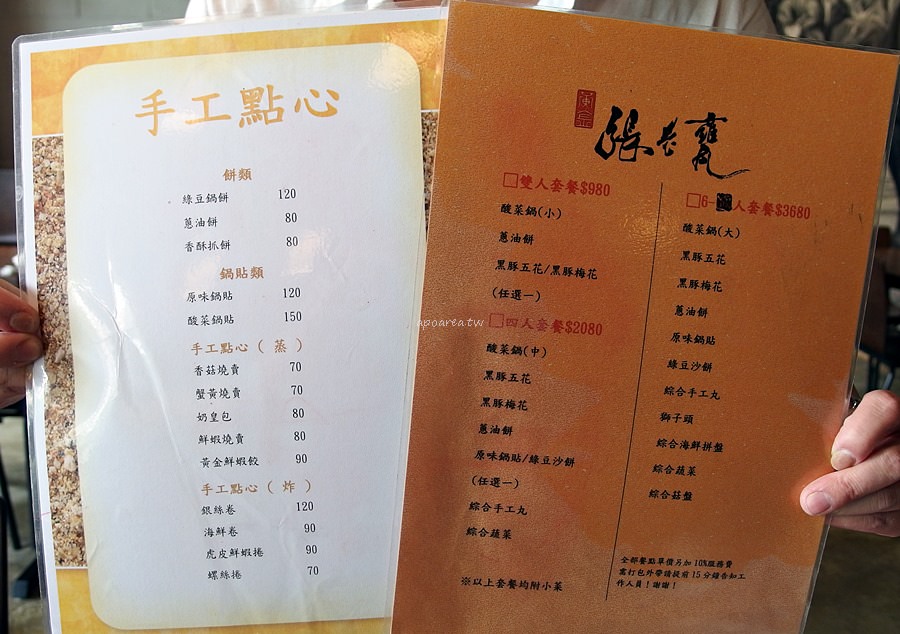 手工點心
餅類
綠豆鍋餅 120
蔥油餅 80
香酥抓餅 80
鍋貼類
原味鍋貼 120
酸菜鍋貼 150
手工點心（蒸）
香菇燒賣 70
蟹黃燒賣 70
奶皇包 80
鮮蝦燒賣 80
黃金鮮蝦餃 90
手工點心（炸）
銀絲卷 120
海鮮卷 90
虎皮鮮蝦捲 90
螺絲捲 70
張老甕
□雙人套餐$980
酸菜鍋(小)
蔥油餅
黑豚五花/黑豚梅花
(任選一)
□四人套餐$2080
酸菜鍋(中)
黑豚五花
黑豚梅花
蔥油餅
原味鍋貼/綠豆沙餅
(任選一)
綜合手工丸
綜合蔬菜
※以上套餐均附小菜
□6-人套餐$3680
酸菜鍋(大)
黑豚五花
黑豚梅花
蔥油餅
原味鍋貼
綠豆沙餅
綜合手工丸
獅子頭
綜合海鮮拼盤
綜合蔬菜
綜合菇盤
全部餐點單價另加10%服務費
需打包外帶請提前15分鐘告知工
作人員！謝謝！
apoarea.tw